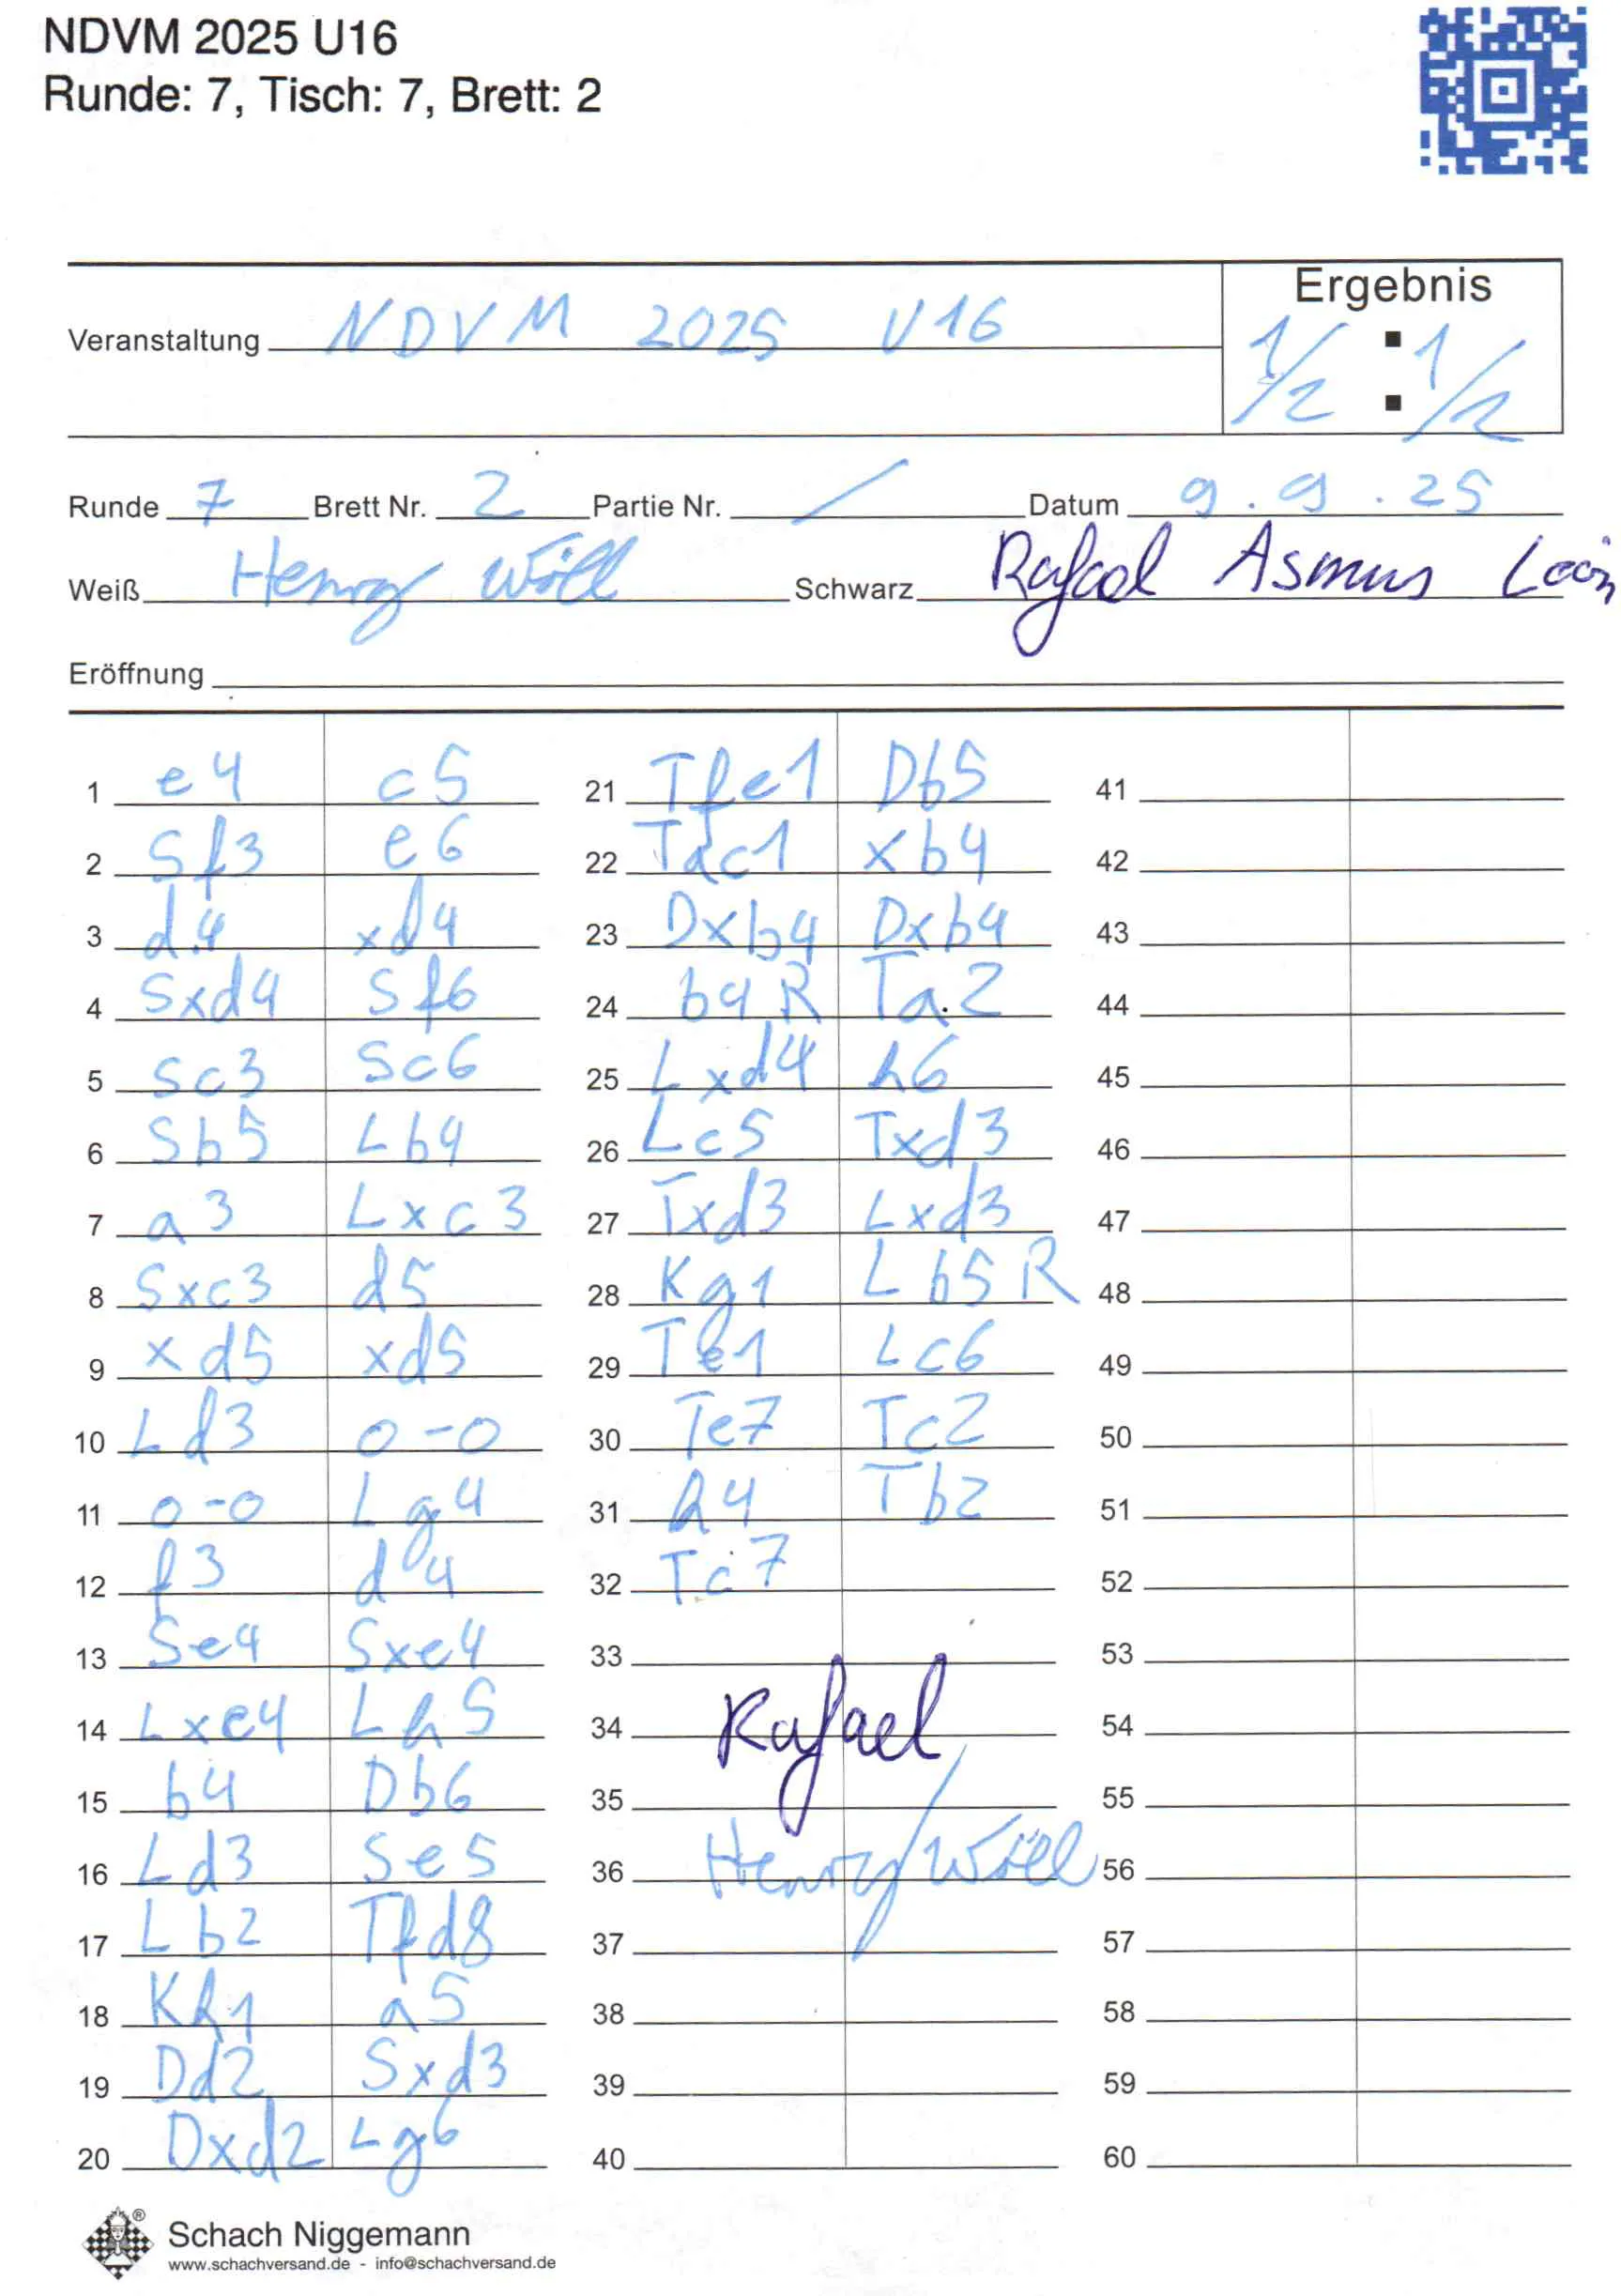 NDVM 2025 U16
Runde: 7, Tisch: 7, Brett: 2
Ergebnis
Veranstaltung NDVM 2025 U16
1/2 : 1/2
Runde 7 Brett Nr. 2 Partie Nr. / Datum 9.9.25
Weiß Henry Wöll Schwarz Rafael Asmus León
Eröffnung
1 e4 c5
2 Sf3 e6
3 d4 xd4
4 Sxd4 Sf6
5 Sc3 Sc6
6 Sb5 Lb4
7 a3 Lxc3
8 Sxc3 d5
9 xd5 xd5
10 Ld3 0-0
11 0-0 Lg4
12 f3 d4
13 Se4 Sxe4
14 Lxe4 Lh5
15 b4 Db6
16 Ld3 Se5
17 Lb2 Tfd8
18 Kh1 a5
19 Dd2 Sxd3
20 Dxd2 Lg6
21 Tfe1 Db5
22 Tac1 xb4
23 Dxb4 Dxb4
24 b4 R Ta2
25 Lxd4 h6
26 Lc5 Txd3
27 Txd3 Lxd3
28 Kg1 Lb5 R
29 Te1 Lc6
30 Te7 Tc2
31 h4 Tb2
32 Tc7
33
34 Rafael
35
36 Henry Wöll
37
38
39
40
41
42
43
44
45
46
47
48
49
50
51
52
53
54
55
56
57
58
59
60
Schach Niggemann
www.schachversand.de - info@schachversand.de